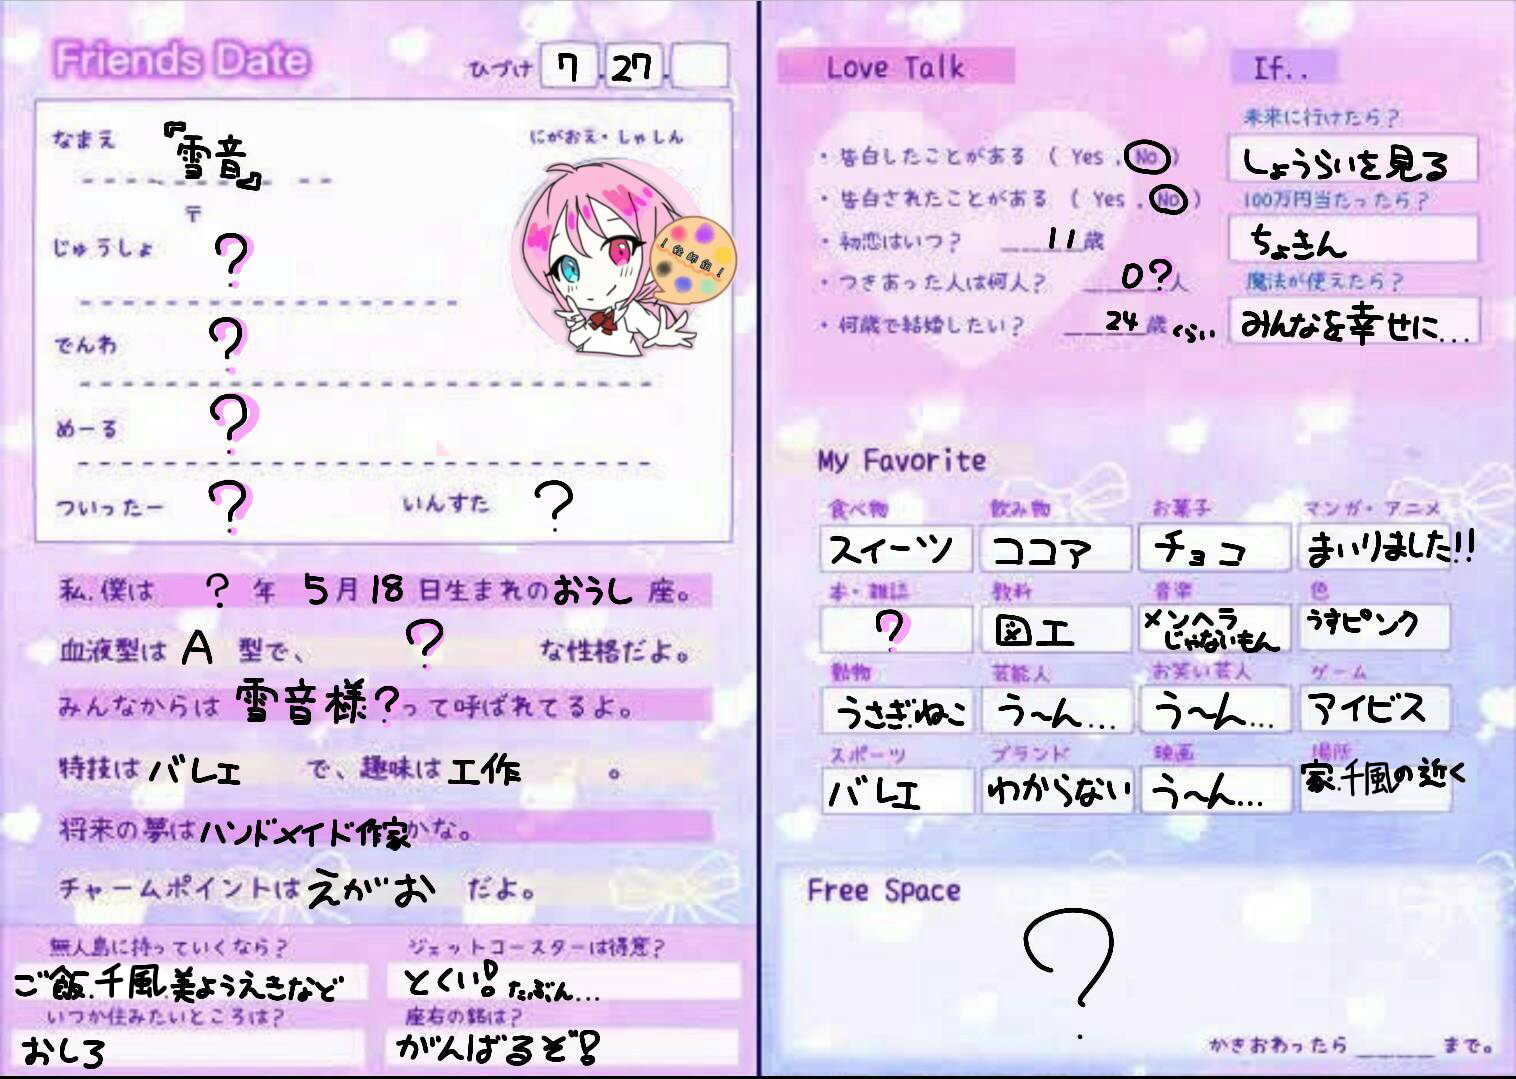 Friends Date
ひづけ 7.27.
なまえ 『雪音』
にがおえ・しゃしん
〒
じゅうしょ ?
でんわ ?
めーる ?
ついったー ? いんすた ?
私.僕は ? 年 5月18日生まれのおうし座。
血液型は A 型で、 ? な性格だよ。
みんなからは 雪音様?って呼ばれてるよ。
特技は バレエ で、趣味は 工作 。
将来の夢はハンドメイド作家かな。
チャームポイントはえがお だよ。
無人島に持っていくなら?
ご飯.千風.美ようえきなど
ジェットコースターは得意?
とくい! たぶん...
いつか住みたいところは?
おしろ
座右の銘は?
がんばるぞ!
Love Talk
・告白したことがある ( Yes . No )
・告白されたことがある ( Yes . No )
・初恋はいつ? 11歳
・つきあった人は何人? 0?人
・何歳で結婚したい? 24歳くらい
If..
未来に行けたら?
しょうらいを見る
100万円当たったら?
ちょきん
魔法が使えたら?
みんなを幸せに...
My Favorite
食べ物 飲み物 お菓子 マンガ・アニメ
スイーツ ココア チョコ まいりました!!
本・雑誌 教科 音楽 色
? 図工 メンヘラじゃないもん うすピンク
動物 芸能人 お笑い芸人 ゲーム
うさぎ.ねこ う〜ん... う〜ん... アイビス
スポーツ ブランド 映画 場所
バレエ わからない う〜ん... 家.千風の近く
Free Space
?
かきおわったら____まで。